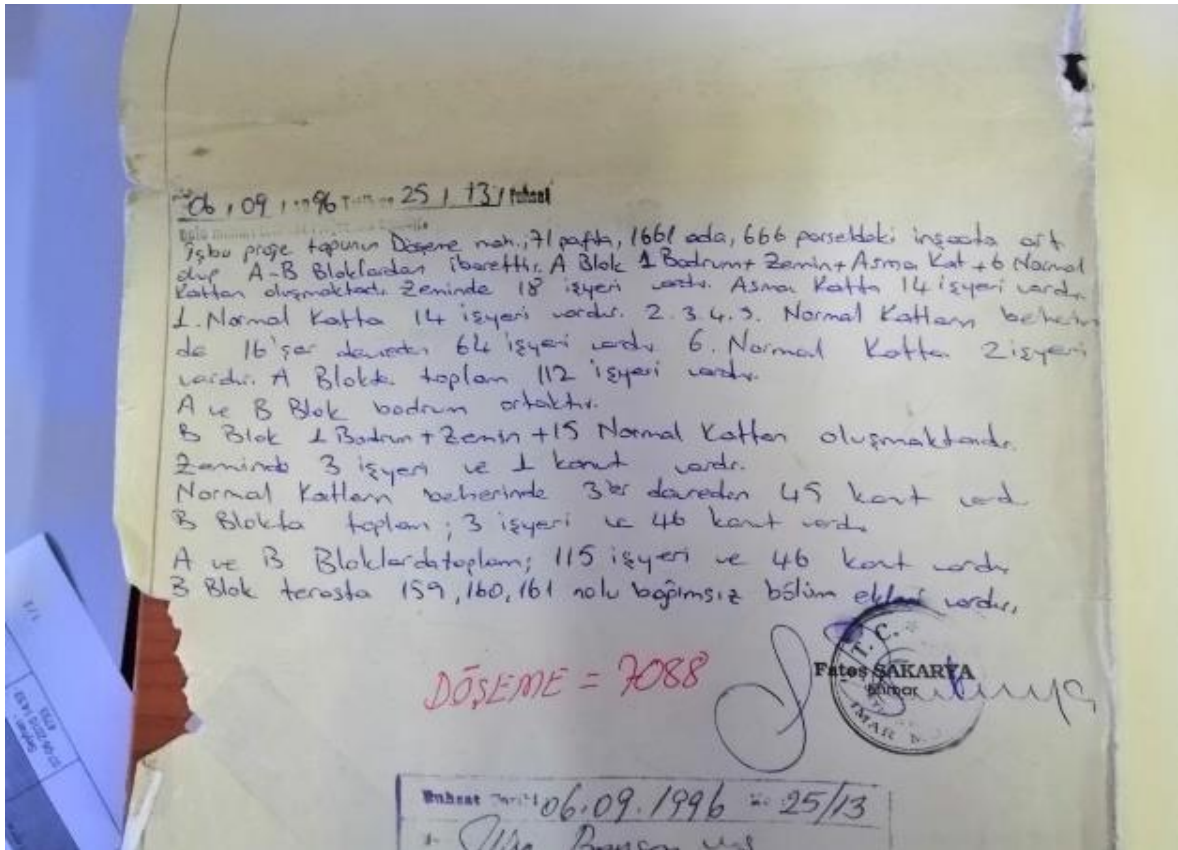 06 / 09 / 1996 25 / 13 / Ruhsat
İşbu proje tapunun Döşeme mah., 71 pafta, 1661 ada, 666 parseldeki inşaata ait
olup A-B Bloklardan ibarettir. A Blok 1 Bodrum + Zemin + Asma Kat + 6 Normal
Kattan oluşmaktadır. Zeminde 18 işyeri vardır. Asma Katta 14 işyeri vardır.
1. Normal Katta 14 işyeri vardır. 2. 3. 4. 5. Normal Katların beherin
de 16'şar daireden 64 işyeri vardır 6. Normal Katta 2 işyeri
vardır. A Blokta toplam 112 işyeri vardır.
A ve B Blok bodrum ortaktır.
B Blok 1 Bodrum + Zemin + 15 Normal Kattan oluşmaktadır.
Zeminde 3 işyeri ve 1 konut vardır.
Normal Katların beherinde 3'er daireden 45 konut vardır
B Blokta toplam; 3 işyeri ve 46 konut vardır
A ve B Bloklarda toplam; 115 işyeri ve 46 konut vardır
B Blok terasta 159, 160, 161 nolu bağımsız bölüm ekleri vardır.
DÖŞEME = 7088
T.C.
Fatoş SAKARYA
Mimar
İMAR
Ruhsat Tarihi 06.09.1996 No: 25/13